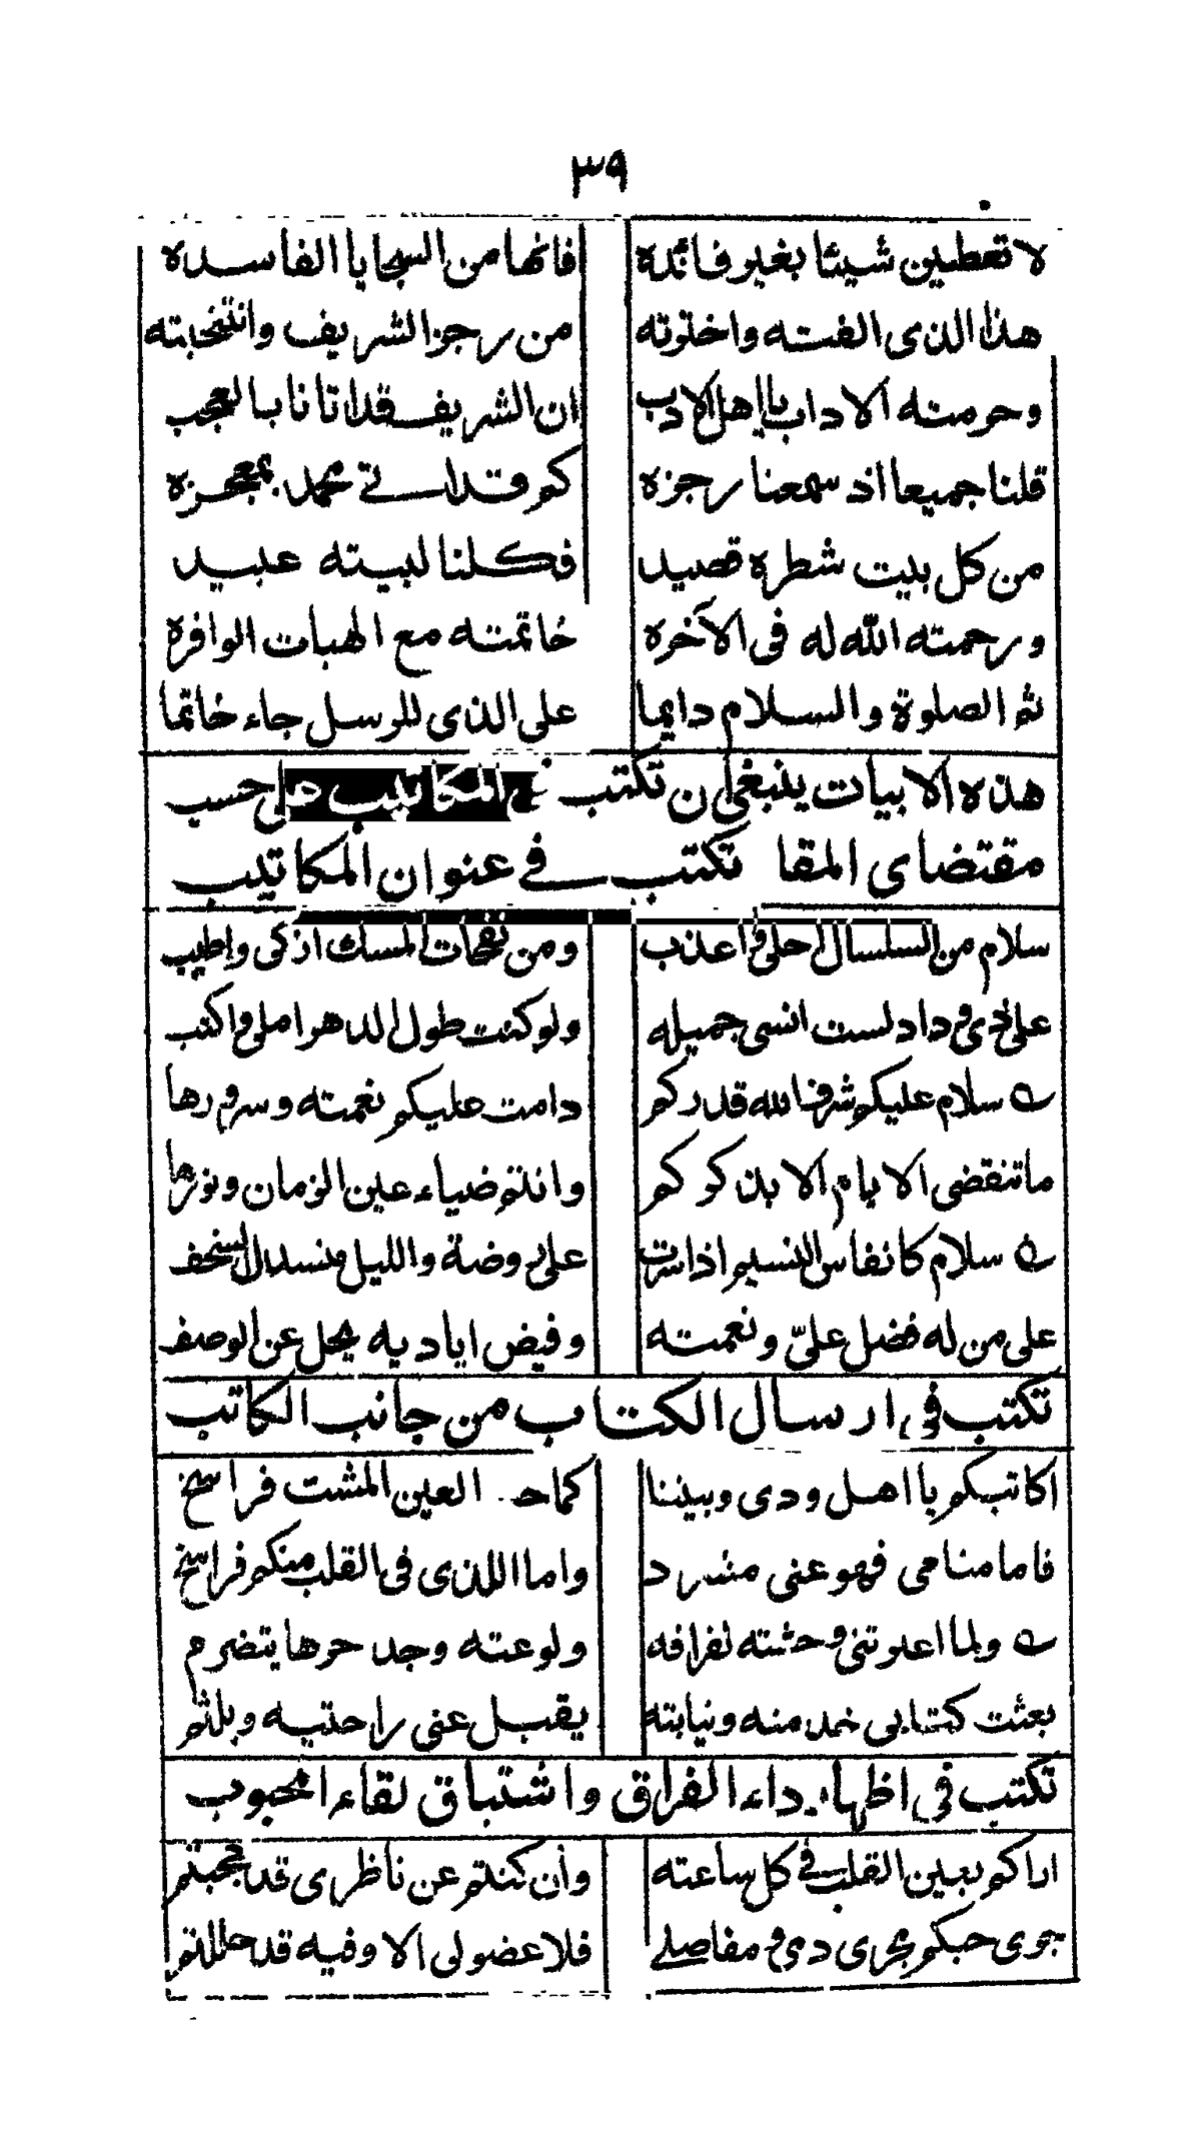 ٣٩
لا تعطين شيئا بغير فائدة فانها من السجايا الفاسده
هذا الذى الفته واخترته من رجز الشريف وانتخبته
وحرمته الاداب يا اهل الادب ان الشريف قد اتانا بالعجب
قلنا جميعا اذ سمعنا رجزه كم قد اتے محمد بمعجزه
من كل بيت شطره قصيد فكلنا لبيته عبيد
ورحمته الله له فى الآخره خاتمته مع الهبات الوافرة
ثم الصلوة والسلام دايما على الذى للرسل جاء خاتما
هذه الابيات ينبغى ان تكتب فے المكاتيب على حسب
مقتضاى المقا تكتب فے عنوان المكاتيب
سلام من السلسال احلى واعذب ومن نفحات المسك ازكى واطيب
على ذى وداد لست انسى جميله ولو كنت طول الدهر املى واكتب
سلام عليكم شرف الله قدركم دامت عليكم نعمته وسرورها
ما تنقضى الايام الا بذكركم وانتم ضياء عين الزمان ونورها
سلام كانفاس النسيم اذا سرت على روضة والليل منسدل السجف
على من له فضل علىّ ونعمته وفيض اياديه يجل عن الوصف
تكتب فى ارسال الكتاب من جانب الكاتب
اكاتبكم يا اهل ودى وبيننا كما العين المشت فراسخ
فاما منامى فهو عنى مشرد واما اللذى فى القلب منكم فراسخ
ولما اعدوتنى وحشته لفراقه ولوعته وجد حرها يتضرم
بعثت كتابى خدمنه ونيابته يقبل عنى راحتيه ويلثم
تكتب فى اظهار داء الفراق واشتباق لقاء المحبوب
اراكم بعين القلب فى كل ساعته وأن كنتم عن ناظرى قد حجبتم
جوى حبكم مجرى دمى ومفاصلے فلا عضو لى الا وفيه قد حللتم